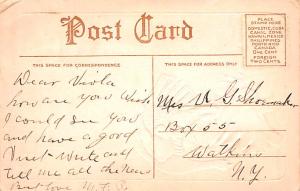 Post Card
PLACE
STAMP HERE
DOMESTIC, CUBA
CANAL ZONE
HAWAII, MEXICO
PHILIPPINES
PORTO RICO
CANADA
ONE CENT
FOREIGN
TWO CENTS
THIS SPACE FOR CORRESPONDENCE
THIS SPACE FOR ADDRESS ONLY
Dear Viola
how are you I wish
I could see you
and have a good
Visit write and
tell me all the news
Best love
Mrs
Box 55
Watkins
N.Y.